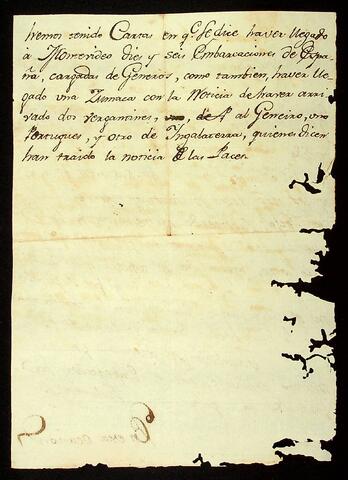 hemos tenido Cartas en q.e se dice haver llegado
à Montevideo dies y seis Embarcaciones de Espa
ña, cargadas de Generos, como tambien, haver lle
gado una Zumaca con la Noticia de haver arri
vado dos vergantines, al Geneiro, uno
Portugues, y otro de Ingalaterra, quienes dicen
han traido la noticia de las Paces.